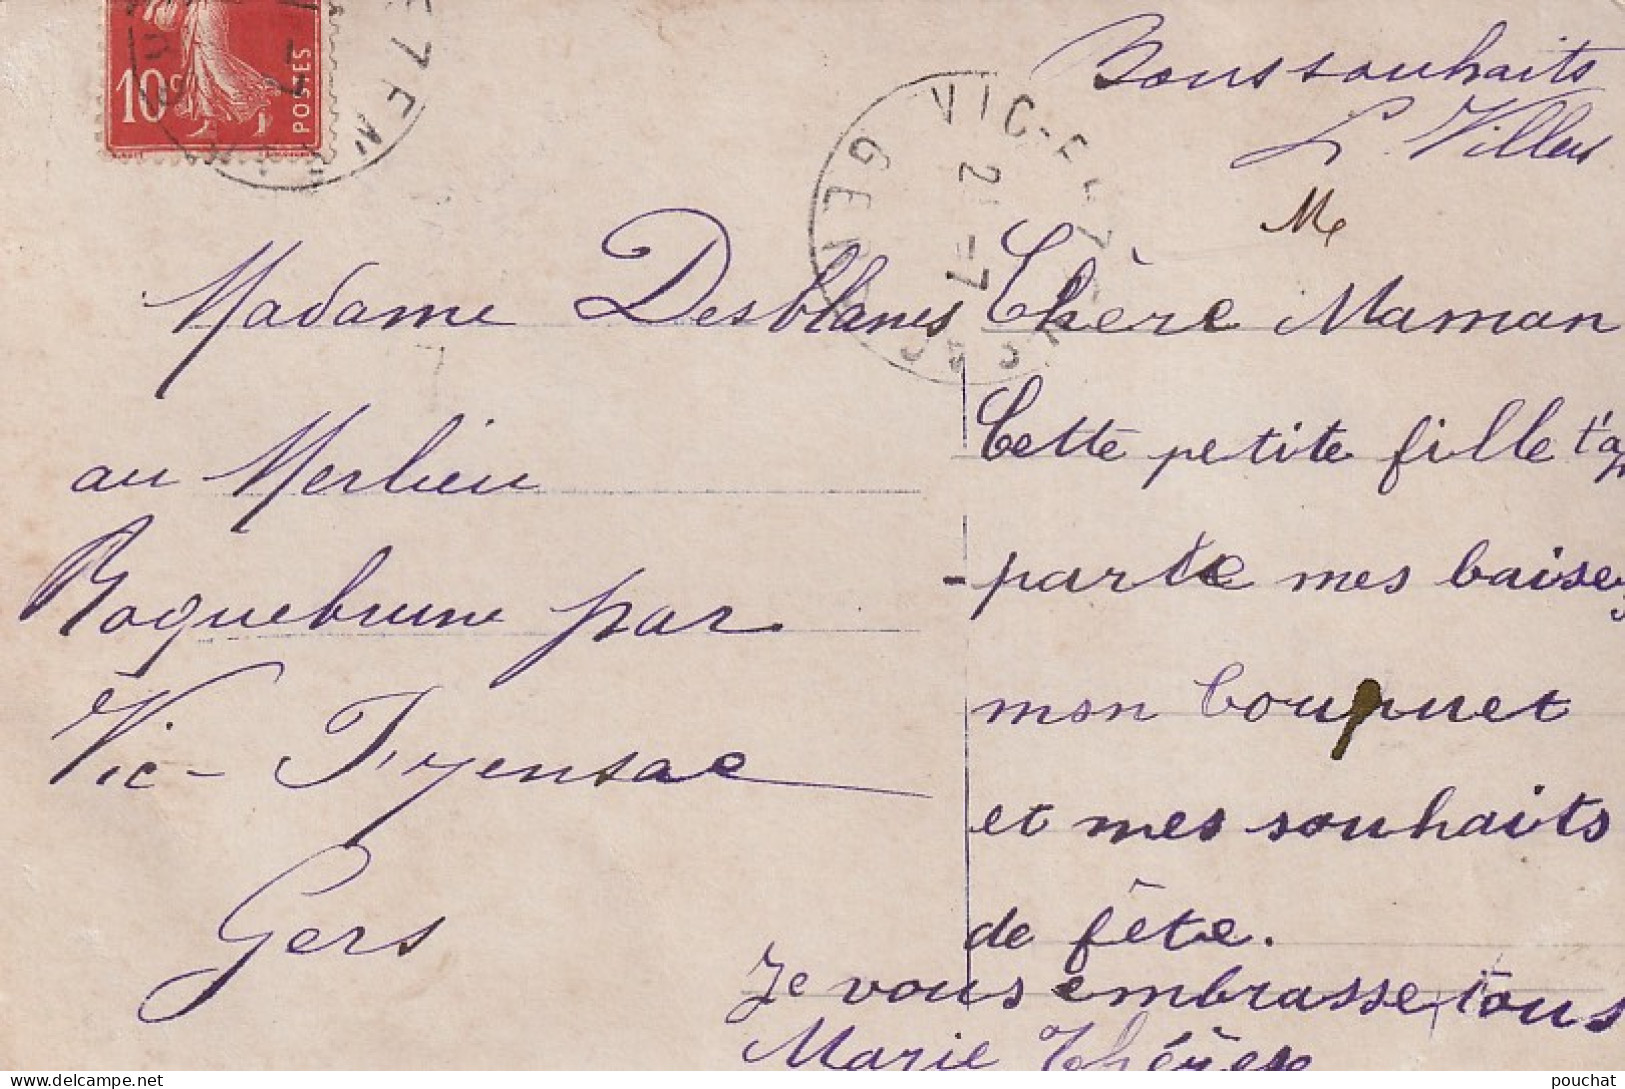 10c
POSTES
VIC-FEZENSAC
GERS
Bons souhaits
L. Villers
Me
Madame Desblancs
au Merlieu
Roquebrune par
Vic-Fezensac
Gers
Chère Maman
Cette petite fille t'ap
parte mes baise
mon bouquet
et mes souhaits
de fête.
Je vous embrasse tous
Marie Thérèse
pouchat